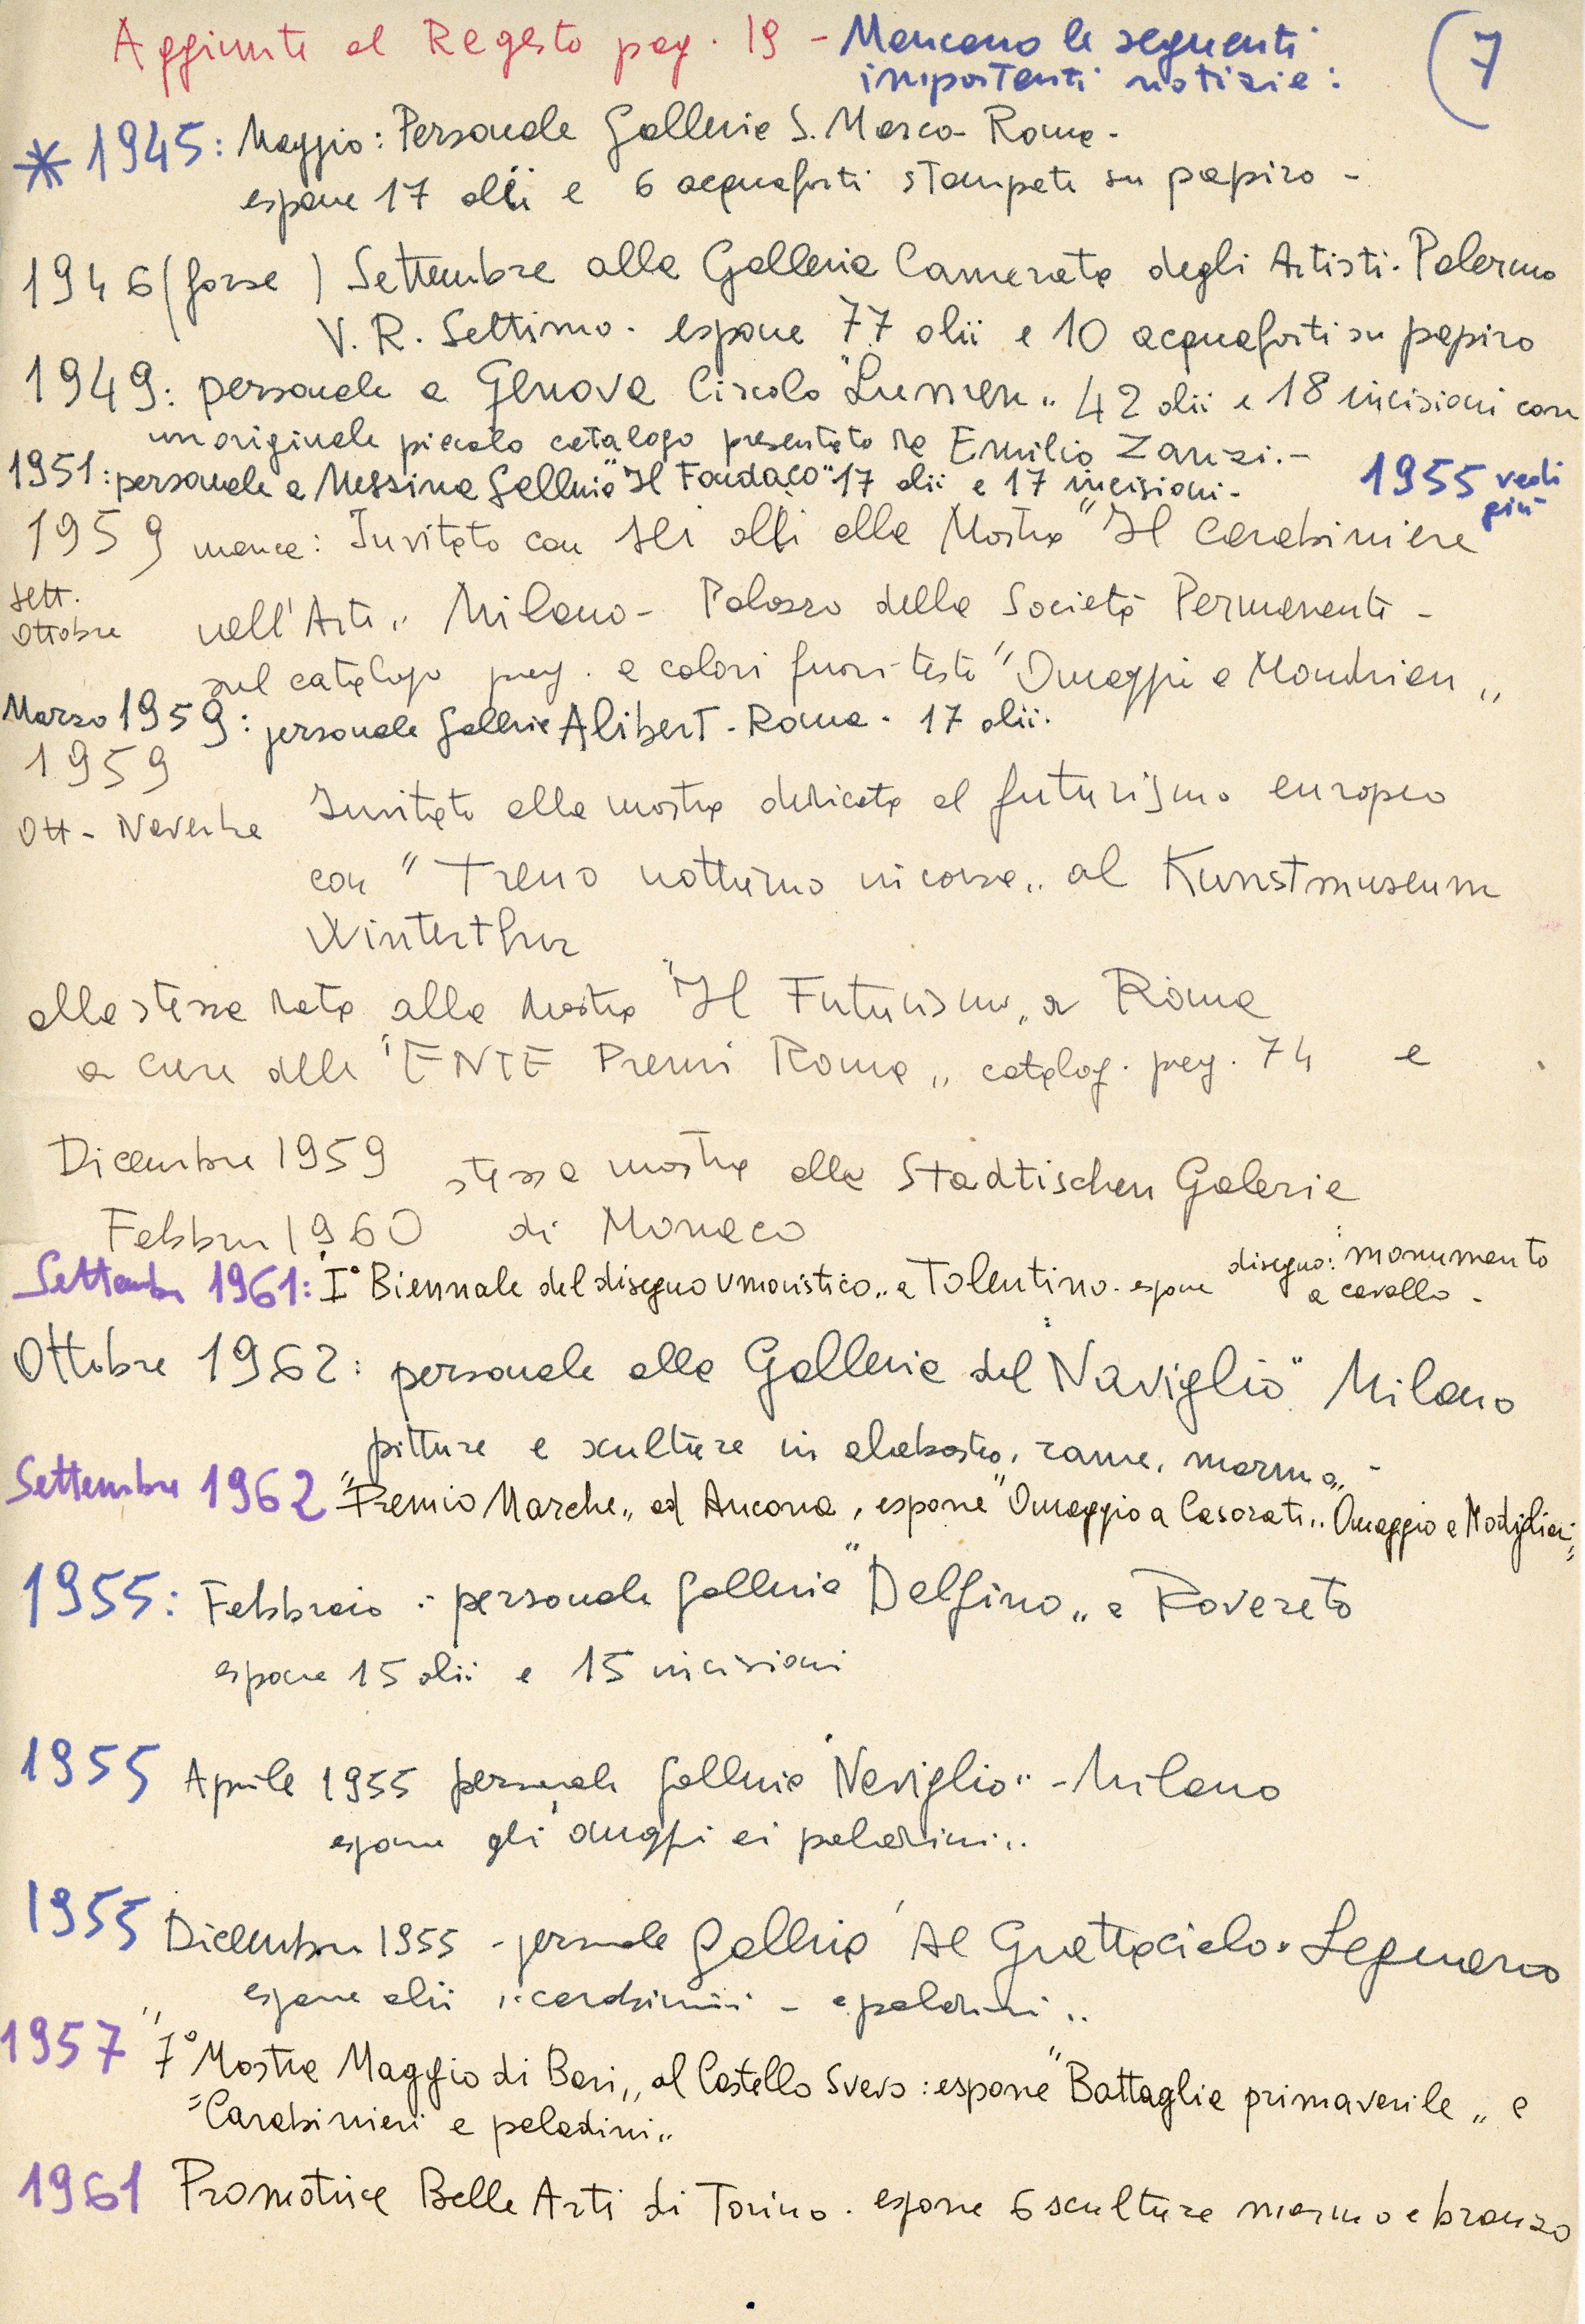 Aggiunte al Regesto pag. 19 - Mancano le seguenti
importanti notizie:
(7
* 1945: Maggio: Personale Galleria S. Marco - Roma -
espone 17 olii e 6 acqueforti stampate su papiro -
1946 (forse) Settembre alla Galleria Camerata degli Artisti. Palermo
V. R. Settimo. espone 77 olii e 10 acqueforti su papiro
1949: personale a Genova Circolo "Lumen„ 42 olii e 18 incisioni con
un originale piccolo catalogo presentato da Emilio Zanzi.-
1951: personale a Messina Galleria "Il Fondaco" 17 olii e 17 incisioni -
1955 vedi
più
1959 manca: Invitato con sei olii alla Mostra "Il Carabiniere
sett.
ottobre
nell'Arte„ Milano - Palazzo della Società Permanente -
sul catalogo pag. a colori fuori-testo "Omaggi a Mondrian„
Marzo 1959: personale Galleria Alibert - Roma - 17 olii.
1959
Ott - Novembre
Invitato alla mostra dedicata al futurismo europeo
con "Treno notturno in corsa„ al Kunstmuseum
Winterthur
alla stessa data alla Mostra "Il Futurismo„ a Roma
a cura dell' "ENTE Premi Roma„ catalog. pag. 74 e
Dicembre 1959
Febbr. 1960
stessa mostra alla Stadtischen Galerie
di Monaco
Settembre 1961: "I° Biennale del disegno umoristico„ a Tolentino. espone disegno: "monumento
a cavallo -
Ottobre 1962: personale alla Galleria del "Naviglio" Milano
pitture e sculture in alabastro, rame, marmo„ -
Settembre 1962 "Premio Marche„ ad Ancona, espone "Omaggio a Casorati„. Omaggio a Modigliani„
1955: Febbraio : personale Galleria "Delfino„ a Rovereto
espone 15 olii e 15 incisioni
1955 Aprile 1955 personale Galleria "Naviglio" - Milano
espone gli "omaggi ai paladini„.
1955 Dicembre 1955 - personale Galleria "Al Grattacielo. Legnano
espone olii "carabinieri - e paladini„.
1957 "7° Mostra Maggio di Bari„ al Castello Svevo: espone "Battaglia primaverile„ e
"Carabinieri e paladini„
1961 Promotrice Belle Arti di Torino. espone 6 sculture marmo e bronzo